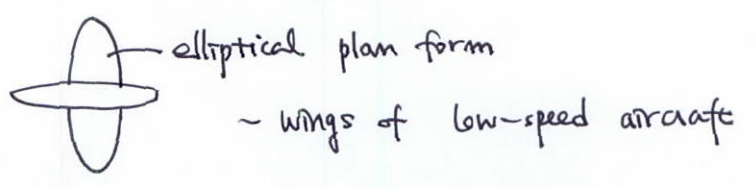 elliptical plan form
~ wings of low-speed aircraft